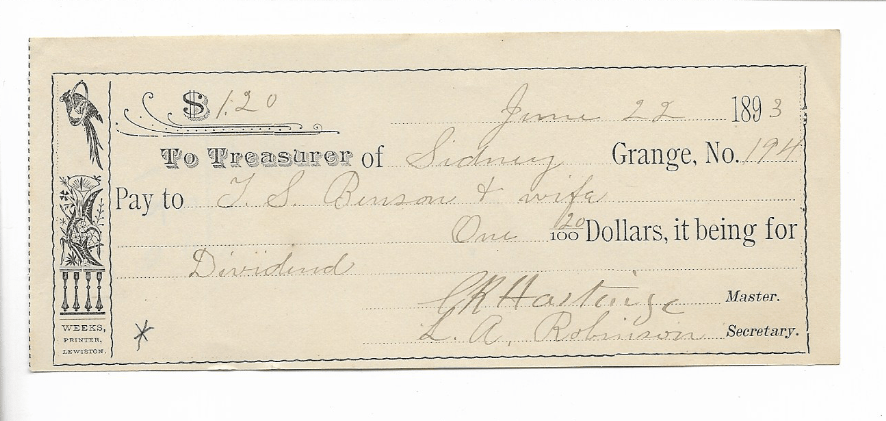 $ 1.20
June 22 1893
To Treasurer of Sidney Grange, No. 194
Pay to T. S. Benson & wife
One 20/100 Dollars, it being for
Dividend
Master.
L. A. Robinson Secretary.
WEEKS,
PRINTER,
LEWISTON.